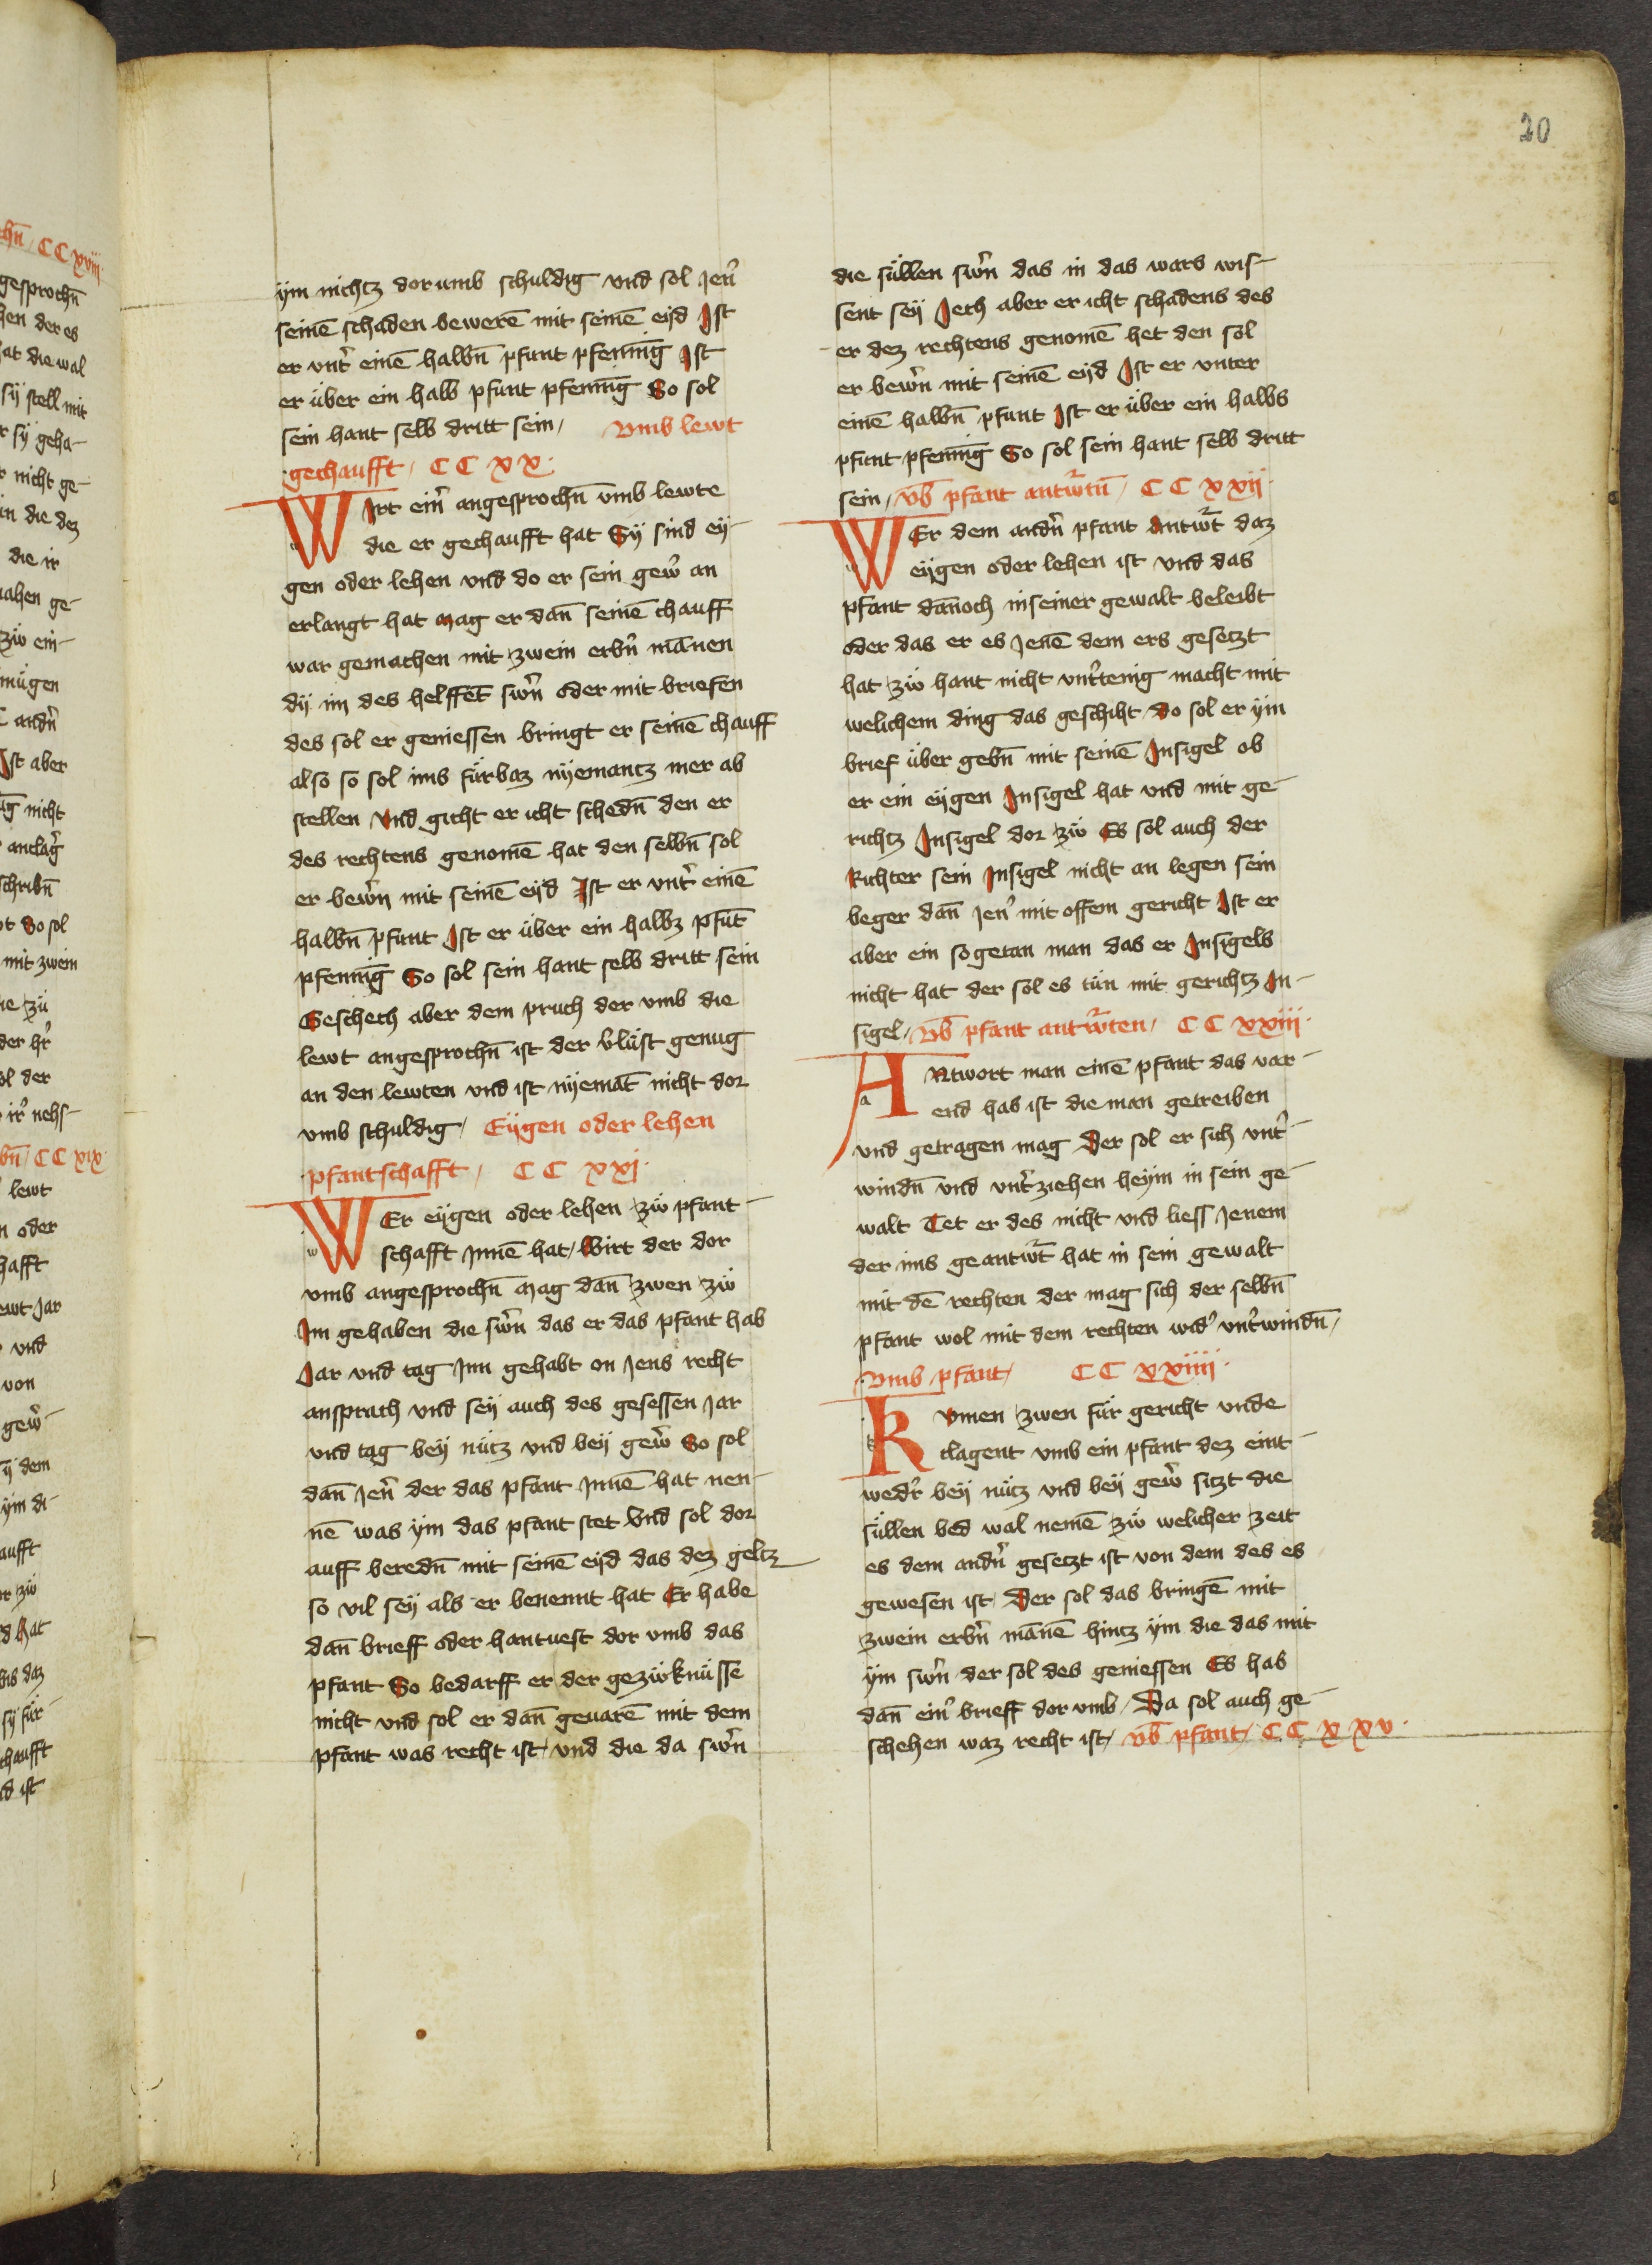 20
ym nichtz dorumb schuldig vnd sol Jen̄
seinē schaden bewerē mit seinē eyd Ist
er vnt̄ einē halbn̄ pfunt pfenīg Ist
er über ein halb pfunt pfenīg So sol
sein hant selb dritt sein / vmb lewt
gechaufft / CC XX ·
WIrt ein̄ angesprochn̄ vmb lewte
die er gechaufft hat Sy sind ey-
gen oder lehen vnd do er sein gew̄ an
erlangt hat Mag er dan̄ seinē chauff
war gemachen mit zwein erbn̄ mānen
dy im des helffēt sw̄n oder mit briefen
des sol er geniessen bringt er seinē chauff
also so sol ims fürbaz nyemantz mer ab
stellen Vnd gicht er icht schedn̄ den er
des rechtens genomē hat den selbn̄ sol
er bew̄n mit seinē eyd Ist er vnt̄ einē
halbn̄ pfunt Ist er über ein halbz pfūt
pfenīg So sol sein hant selb dritt sein
Geschech aber dem pruch der vmb die
lewt angesprochn̄ ist der v̄lüst genug
an den lewten vnd ist nyemāt nicht dor
vmb schuldig / Eygen oder lehen
pfantschafft / CC XXI ·
WEr eygen oder lehen zů pfant-
schafft Innē hat / Wirt der dor
vmb angesprochn̄ Mag dan̄ zwen zů
Im gehaben die sw̄n das er das pfant hab
Jar vnd tag Inn gehabt on Jens recht
ansprach vnd sey auch des gesessen Jar
vnd tag bey nütz vnd bey gew̄ So sol
dan̄ Jen̄ der das pfant Innē hat nen-
nē was ym das pfant stet Vnd sol dor
auff beredn̄ mit seinē eyd das dez geltz
so vil sey als er benennt hat Er habe
dan̄ brieff oder hantuest dor vmb das
pfant So bedarff er der gezůknüsse
nicht vnd sol er dan̄ geuarē mit dem
pfant was recht ist / vnd die da sw̄n
die süllen sw̄n das in das wars wis-
sent sey Jech aber er icht schadens des
er dez rechtens genomē het den sol
er bew̄n mit seinē eyd Ist er vnter
einē halbn̄ pfunt Ist er über ein halbs
pfunt pfenīg So sol sein hant selb dritt
sein / vb̄ pfant antw̄tn̄ / CC XXII ·
WEr dem andn̄ pfant Antw̄t daz
eygen oder lehen ist vnd das
pfant dānoch in seiner gewalt beleibt
oder das er es Jenē dem ers gesetzt
hat zů hant nicht vnt̄tenig macht mit
welichem ding das geschiht Do sol er ym
brief über gebn̄ mit seinē Insigel ob
er ein eygen Insigel hat vnd mit ge-
richtz Insigel dor zů Es sol auch der
Richter sein Insigel nicht an legen sein
beger dan̄ Jen̄ mit offem gericht Ist er
aber ein sogetan man das er Insigels
nicht hat der sol es tün mit gerichtz In-
sigel / Vb̄ pfant antw̄ten / CC XXIII ·
ANtwort man einē pfant das var-
end hab ist die man getreiben
vnd getragen mag Der sol er sich vnt̄-
windn̄ vnd vnt̄ziehen heym in sein ge-
walt Tet er des nicht vnd liess Jenem
der ims geantw̄t hat in sein gewalt
mit dē rechten der mag sich der selbn̄
pfant wol mit dem rechten wid̄ vnt̄windn̄ /
vmb pfant / CC XXIIII ·
KVmen zwen für gericht vnde
clagent vmb ein pfant dez eint-
wed̄r bey nütz vnd bey gew̄ sitzt die
süllen bed wal nemē zů welicher zeit
es dem andn̄ gesetzt ist von dem des es
gewesen ist Der sol das bringē mit
zwein erbn̄ mānē hintz ym die das mit
ym sw̄n der sol des geniessen Es hab
dan̄ ein̄ brieff dor vmb / Da sol auch ge-
schehen waz recht ist / vb̄ pfant / CC XXV ·